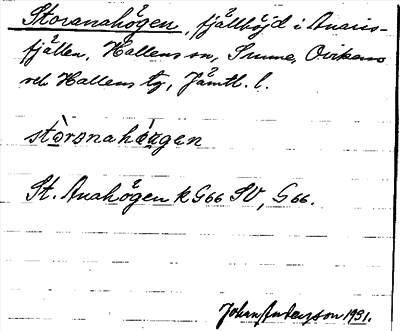 Storanahögen, fjällhöjd i Anaris-
fjällen, Hallens sn, Sunne, Ovikens
och Hallens tg, Jämtl. l.
stòranahö̀gen
St. Anahögen k G66 SV, G66.
John Anderson 1931.